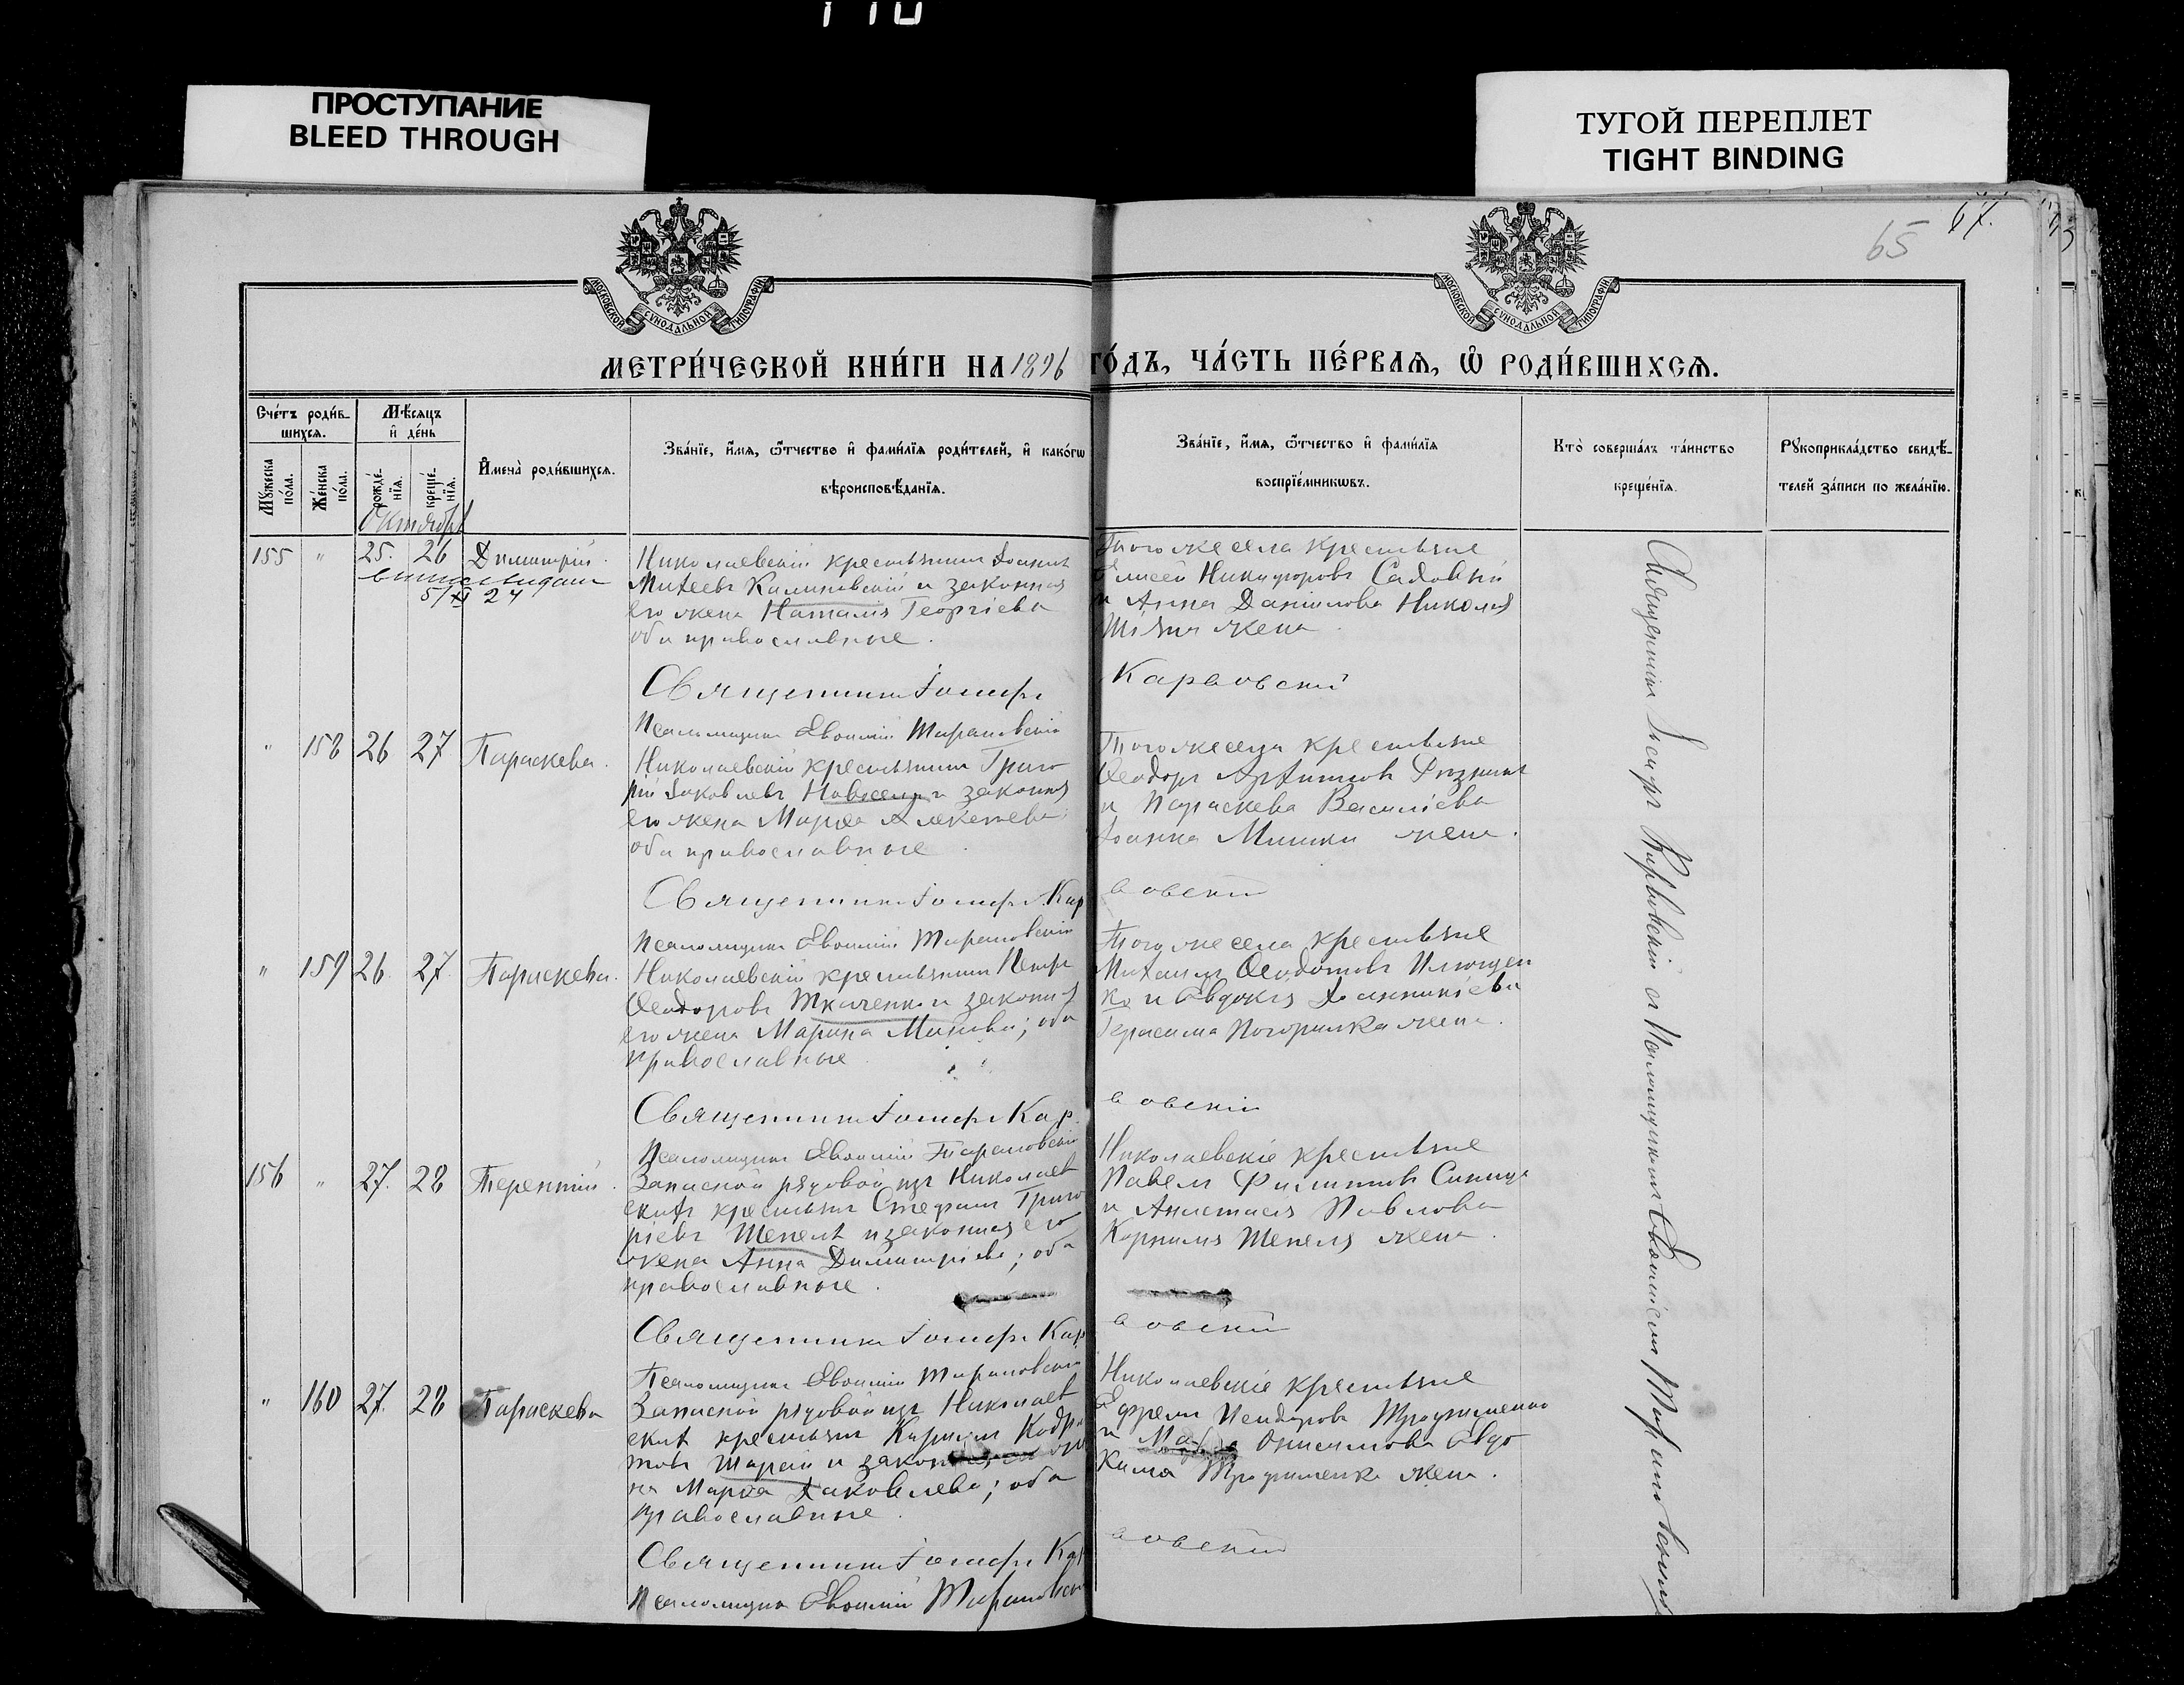 ПРОСТУПАНИЕ
BLEED THROUGH
ТУГОЙ ПЕРЕПЛЕТ
TIGHT BINDING
65
67.
МОСКОВСКОЙ СУНОДАЛЬНОЙ ТИПОГРАФІИ
МОСКОВСКОЙ СУНОДАЛЬНОЙ ТИПОГРАФІИ
МЕТРИ́ЧЕСКОЙ КНИ́ГИ НА 1896 ГО́ДЪ, ЧА́СТЬ ПЕ́РВАѦ, Ѡ РОДИ́ВШИХСѦ.
Сче́тъ роди́в-
шихсѧ.
Мѣ́сѧцъ
и де́нь
Мꙋжеска по́ла.
Же́нска по́ла.
рожде́нїѧ.
креще́нїѧ.
И҆мена̀ роди́вшихсѧ.
Зва́нїе, и҆́мѧ, ѻ҆́тчество и҆ фами́лїѧ роди́телей, и҆ како́гѡ
вѣроисповѣ́данїѧ.
Зва́нїе, и҆́мѧ, ѻ҆́тчество и҆ фами́лїѧ
воспрїе́мникѡвъ.
Кто̀ соверша́лъ та́инство
креще́нїѧ.
Рꙋкоприкла́дство свидѣ́-
телей за́писи по жела́нїю.
Октябрь
155 " 25. 26 Димитрій.
5/XI 24
Николаевскій крестьянинъ Іоаннъ
Михеевъ Калиновскій и законная
его жена Наталія Георгіева
оба православные.
Тогоже села крестьяне
Елисей Никифоровъ Садовый
и Анна Даніилова Николая
жена
Священникъ Іосифъ Карвовскій
Псаломщикъ Евѳимій Тарановскій
" 158 26 27 Параскева.
Николаевскій крестьянинъ Григо
рій Іаковлевъ и законная
его жена Марѳа Алексѣева
оба православные.
Тогоже села крестьяне
Ѳеодоръ
и Параскева Василіева
Іоанна Мишки жена.
Священникъ Іосифъ Карвовскій
Псаломщикъ Евѳимій Тарановскій
" 159 26. 27. Параскева.
Николаевскій крестьянинъ Петръ
Ѳеодоровъ Ткаченко и законная
его жена Марина; оба
православные
Тогоже села крестьяне
Михаилъ Ѳеодотовъ Ильющен
ко и Евдокія
Герасима жена.
Священникъ Іосифъ Карвовскій
Псаломщикъ Евѳимій Тарановскій
156 " 27. 28 Терентій.
Запасной рядовой изъ Николаев
скихъ крестьянъ Стефанъ Григо
ріевъ Шепель и законная его
жена Анна Димитріева; оба
православные.
Николаевскіе крестьяне
Павелъ Филипповъ Синица
и Анастасія Павлова
Корнилія Шепеля жена.
Священникъ Іосифъ Карвовскій
Псаломщикъ Евѳимій Тарановскій
" 160 27. 28 Параскева
Запасной рядовой изъ Николаев
скихъ крестьянъ Кодра
товъ и законная
Марѳа Іаковлева; оба
православные.
Николаевскіе крестьяне
Ефремъ Трофименко
и Онисимова Евдо
кима Трофименка жена.
Священникъ Іосифъ Карвовскій
Псаломщикъ Евѳимій Тарановскій
Священникъ Іосифъ Карвовскій съ Псаломщикомъ Евѳиміемъ Тарановскимъ